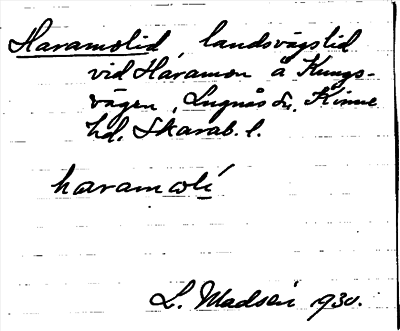 Haramolid, landsvägslid
vid Haramon å Kungs-
vägen, Lugnås sn, Kinne
hd. Skarab. l.
haramolí
L. Madsén 1930.